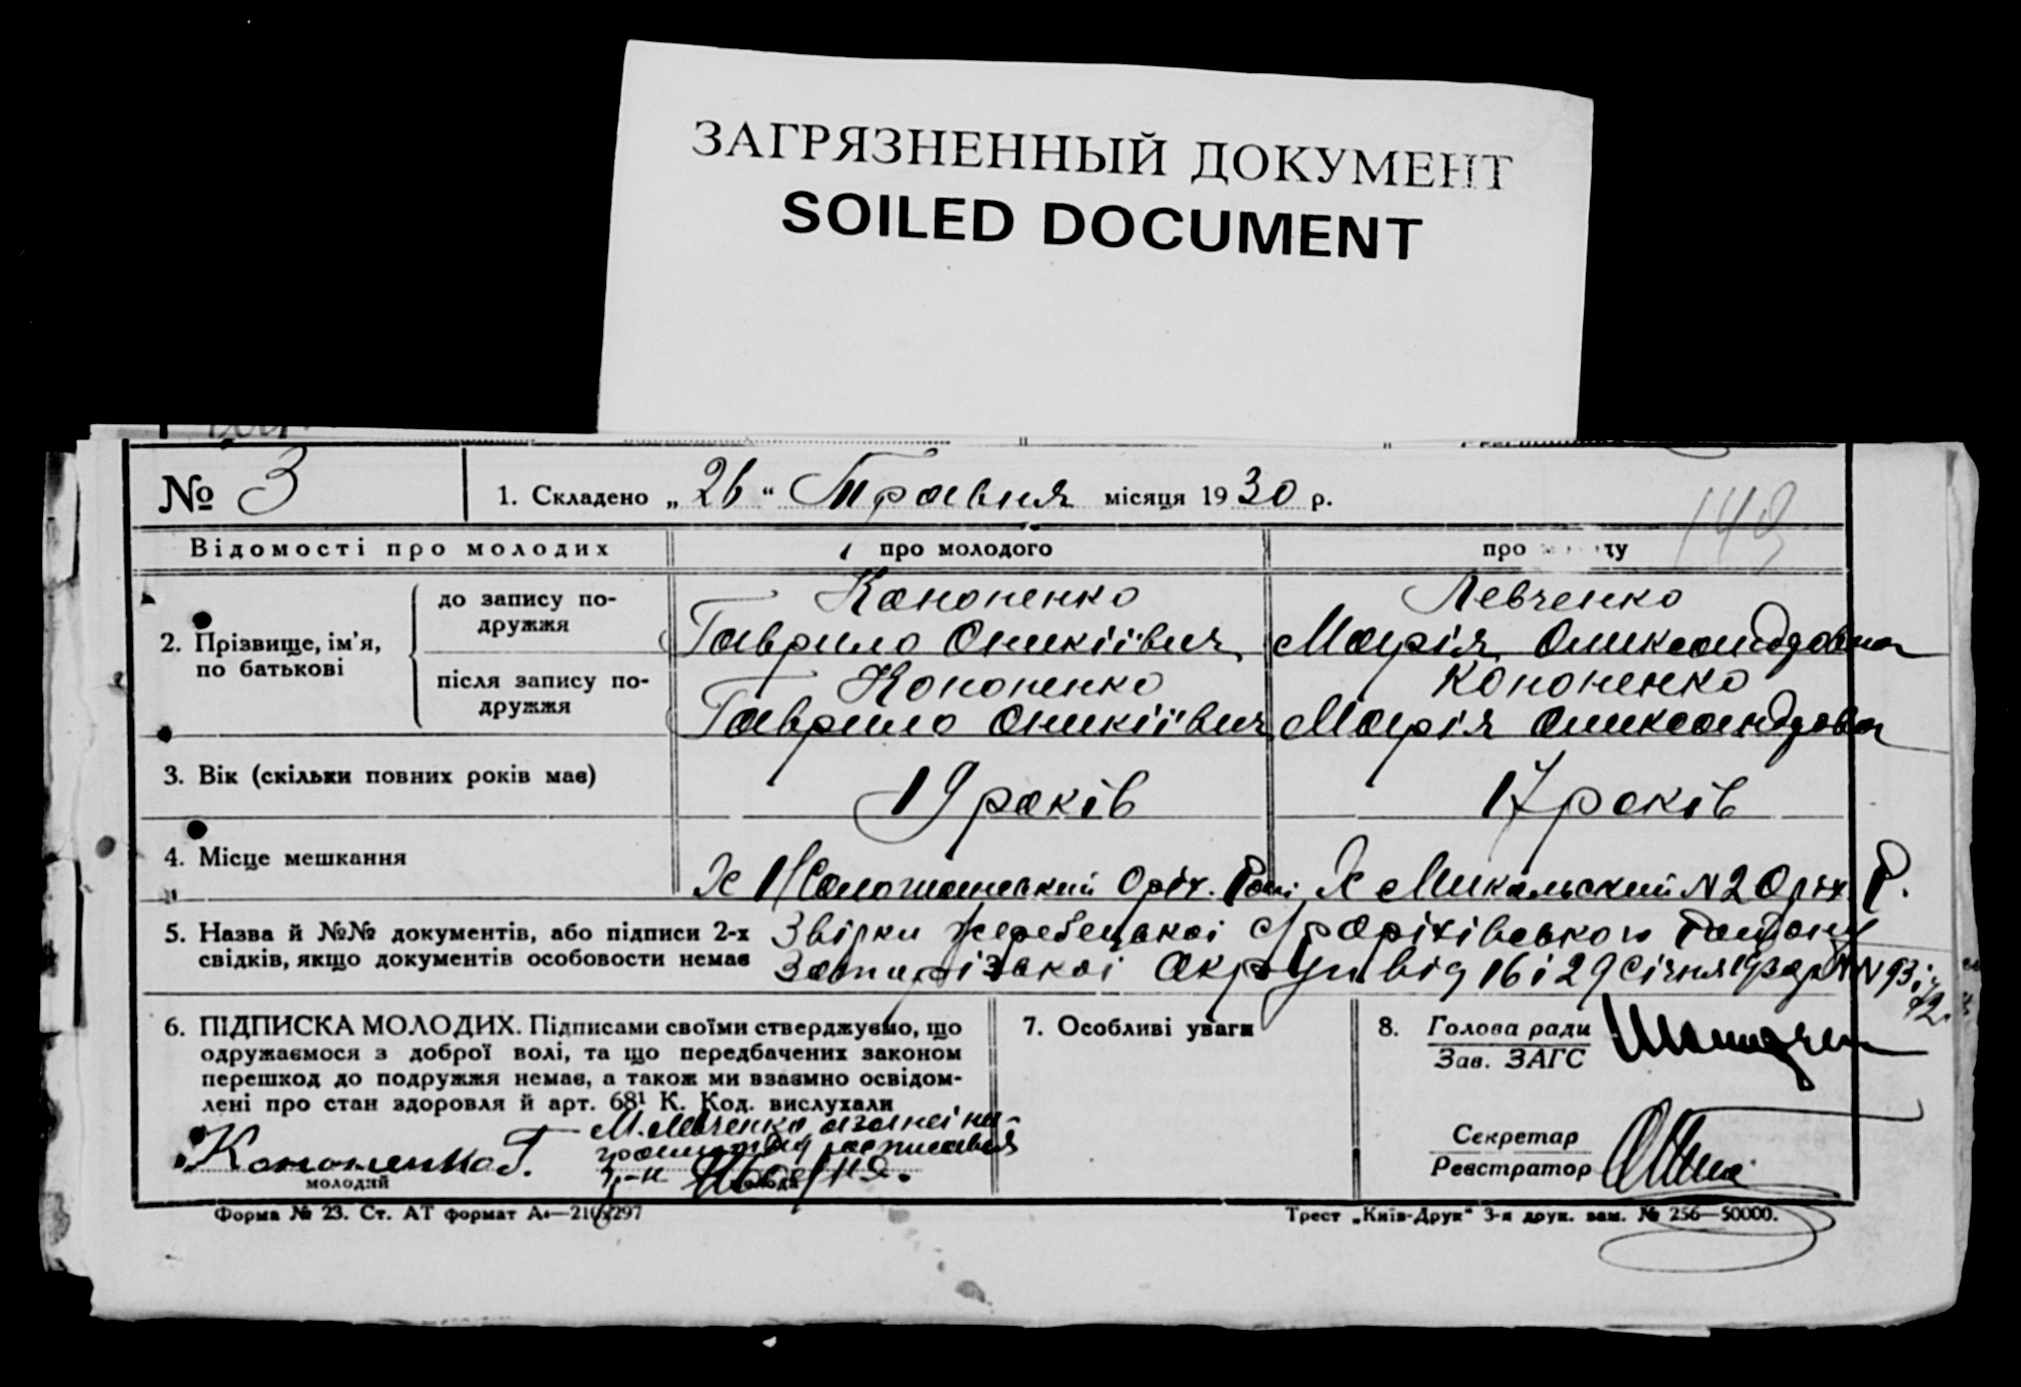 ЗАГРЯЗНЕННЫЙ ДОКУМЕНТ
SOILED DOCUMENT
№ 3
1. Складено „26“ Травня місяця 1930 р.
149
Відомості про молодих
про молодого
про ту
2. Прізвище, ім'я, по батькові
до запису по-
дружжя
Кононенко
Гаврило Оникіївич
Левченко
Марія Олександровна
після запису по-
дружжя
Кононенко
Гаврило Оникіївич
Кононенко
Марія Олександровна
3. Вік (скільки повних років має)
19 років
17 років
4. Місце мешкання
Х Оріх. Рай.
Х Микольський N2 Оріх. Р.
5. Назва й №№ документів, або підписи 2-х
свідків, якщо документів особовости немає
Звірки Жеребецької с/р Оріхівського району
Запорізької округи від 16 і 29 січня 1930 р NN 93 і
6. ПІДПИСКА МОЛОДИХ. Підписами своїми стверджуємо, що
одружаємося з доброї волі, та що передбачених законом
перешкод до подружжя немає, а також ми взаємно освідом-
лені про стан здоровля й арт. 68¹ К. Код. вислухали
Кононенко Г.
молодий
М. Левченко, а за неї не-
грамотну расписався
гр-н
молода
7. Особливі уваги
8. Голова ради
Зав. ЗАГС
Секретар
Реєстратор
Форма № 23. Ст. АТ формат А4—210×297
Трест „Київ-Друк“ 3-я друк. зам. № 256—50000.